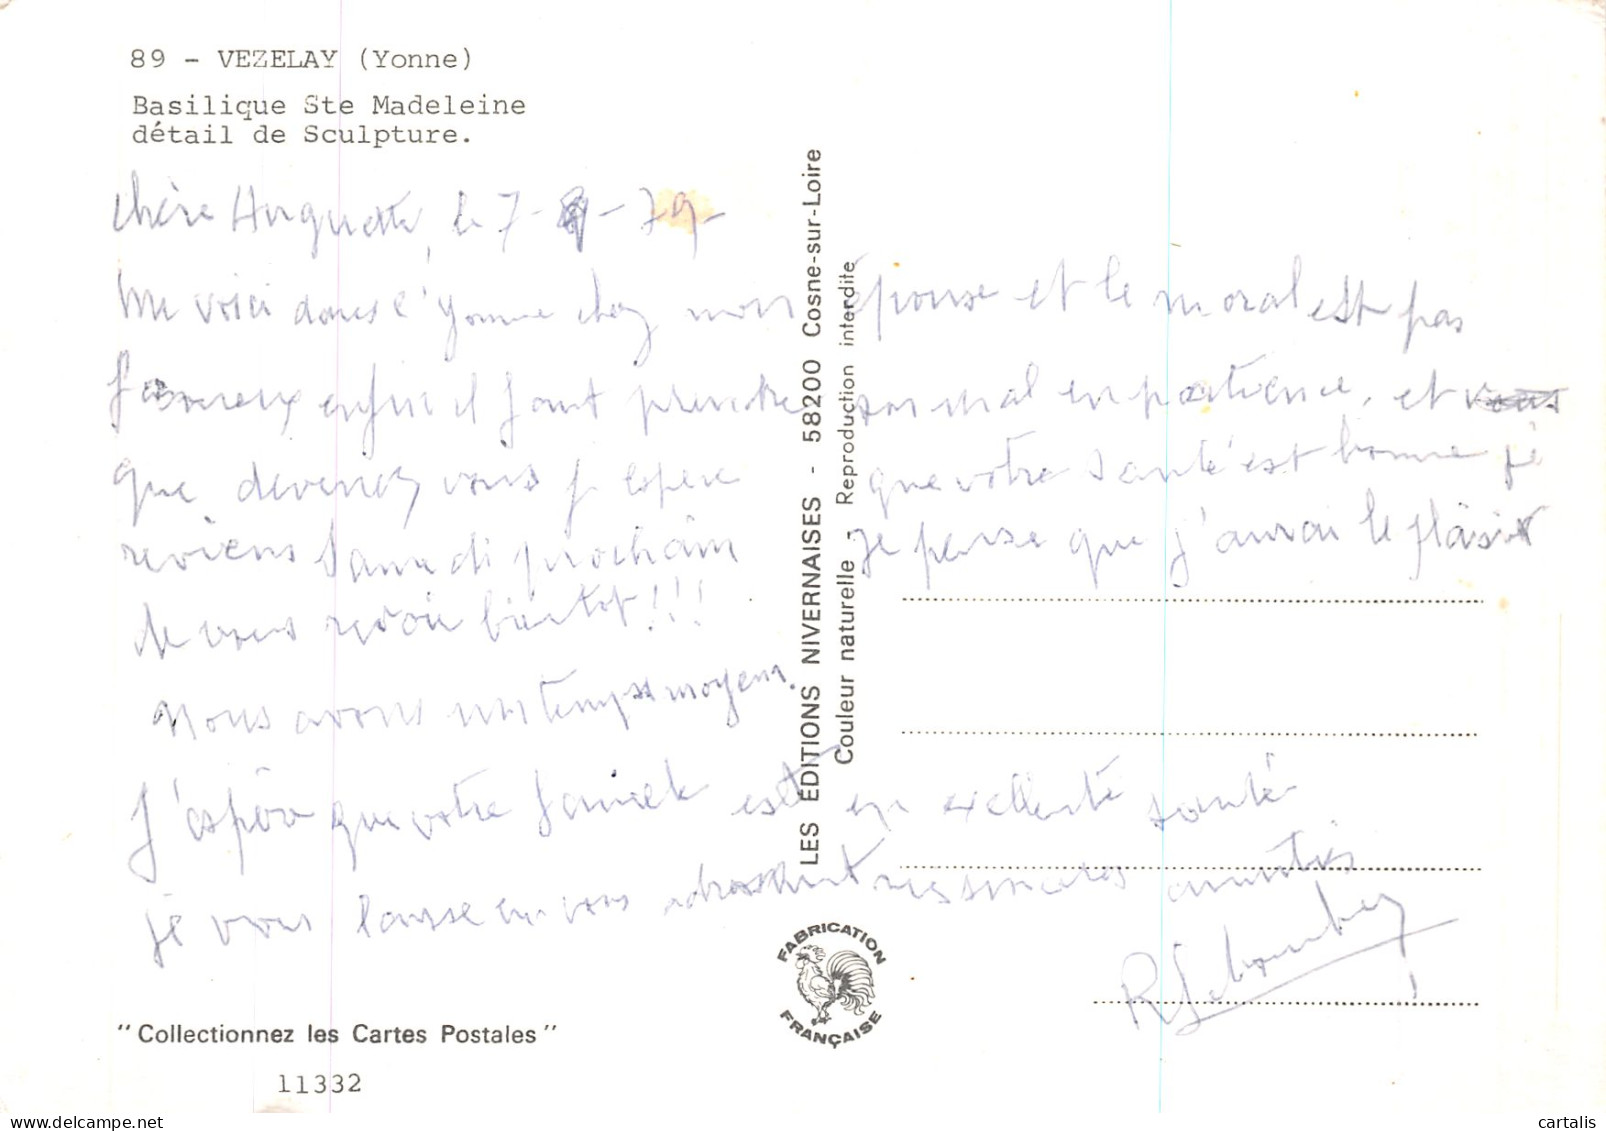 89 - VEZELAY (Yonne)
Basilique Ste Madeleine
détail de Sculpture.
Chère Huguette, le 7- -79-
Me voici dans l'Yonne chez mon épouse et le moral est pas
fameux enfin il faut prendre son mal en patience, et
que devenez vous j'espère que votre santé est bonne je
reviens samedi prochain je pense que j'aurai le plaisir
de vous revoir bientot!!!
nous avons un temps moyen.
J'espère que votre est en excellente santé
je vous laisse en vous adressant mes sincères amitiés
LES ÉDITIONS NIVERNAISES - 58200 Cosne-sur-Loire
Couleur naturelle - Reproduction interdite
FABRICATION FRANÇAISE
"Collectionnez les Cartes Postales"
11332
cartalis